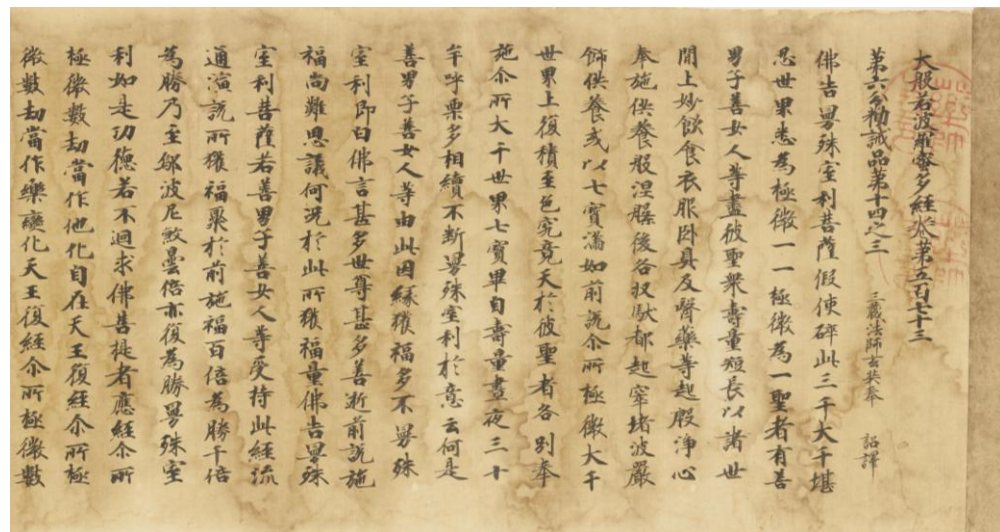 大般若波羅蜜多經卷第五百七十三
第六分勸誡品第十四之三　三藏法師玄奘奉　詔譯
佛告曼殊室利菩薩假使碎此三千大千堪
忍世界悉為極微一一極微為一聖者有善
男子善女人等盡彼聖衆壽量短長以諸世
間上妙飲食衣服卧具及醫藥等起殷淨心
奉施供養般涅槃後各収馱都起窣堵波嚴
飾供養或以七寶滿如前說尒所極微大千
世界上復積至色究竟天於彼聖者各別奉
施尒所大千世界七寶畢自壽量晝夜三十
牟呼栗多相續不斷曼殊室利於意云何是
善男子善女人等由此因緣獲福多不曼殊
室利即白佛言甚多世尊甚多善逝前說施
福尚難思議何況於此所獲福量佛告曼殊
室利菩薩若善男子善女人等受持此經流
通演說所獲福聚於前施福百倍為勝千倍
為勝乃至鄔波尼煞曇倍亦復為勝曼殊室
利如是功德若不迴求佛菩提者應經尒所
極微數劫當作他化自在天王復經尒所極
微數劫當作樂變化天王復經尒所極微數